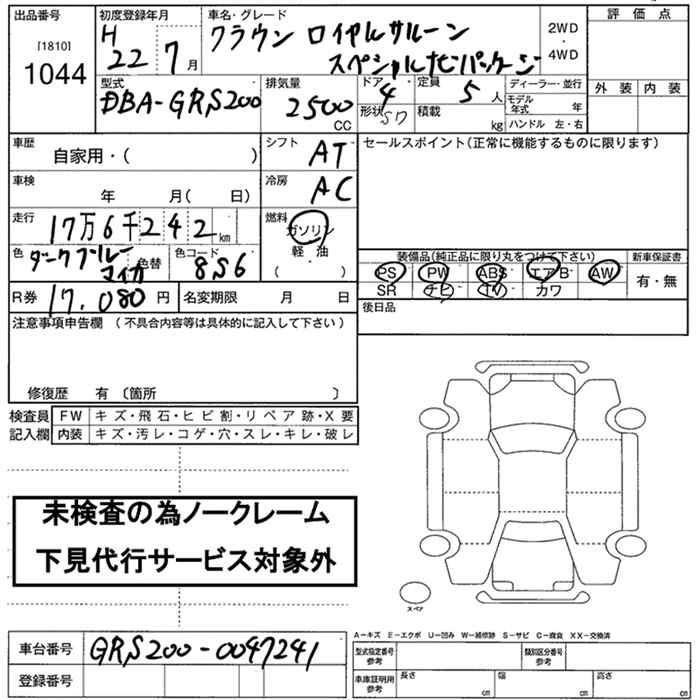 出品番号 初度登録年月 車名・グレード 評価点
[1810] H クラウン ロイヤルサルーン 2WD
1044 22年 7月 スペシャルナビパッケージ ・ 4WD
型式 排気量 ドア 定員 ディーラー・並行 外装 内装
DBA-GRS200 2500 CC 4 5 人 モデル年式 年
形状 SD 積載 kg ハンドル 左・右
車歴 自家用・( ) シフト AT セールスポイント(正常に機能するものに限ります)
車検 年 月( 日) 冷房 AC
走行 17万6千242km 燃料 ガソリン 軽油 ・ ( )
色 ダークブルーマイカ 色替 色コード 8S6
装備品(純正品に限り丸をつけて下さい) 新車保証書
PS PW ABS エアB AW 有・無
SR ナビ TV カワ
R券 17.080円 名変期限 月 日 後日品
注意事項申告欄 (不具合内容等は具体的に記入して下さい)
修復歴 有 〔箇所 〕
検査員 FW キズ・飛石・ヒビ割・リペア跡・X要
記入欄 内装 キズ・汚レ・コゲ・穴・スレ・キレ・破レ
未検査の為ノークレーム
下見代行サービス対象外
スペア
A－キズ E－エクボ U－凹み W－補修跡 S－サビ C－腐食 XX－交換済
車台番号 GRS200-0047241 型式指定番号 参考 類別区分番号 参考
登録番号 車庫証明用 参考 長さ cm 幅 cm 高さ cm